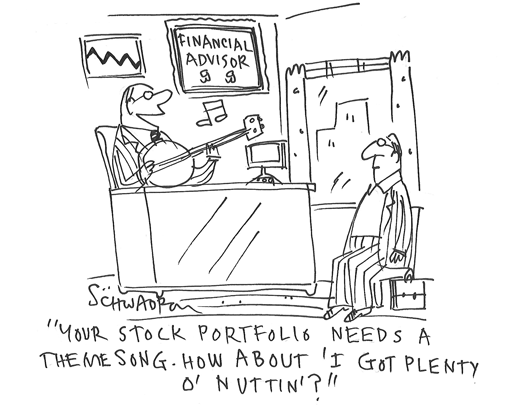 FINANCIAL
ADVISOR
SCHWADRON
"YOUR STOCK PORTFOLIO NEEDS A
THEME SONG. HOW ABOUT 'I GOT PLENTY
O' NUTTIN'?"